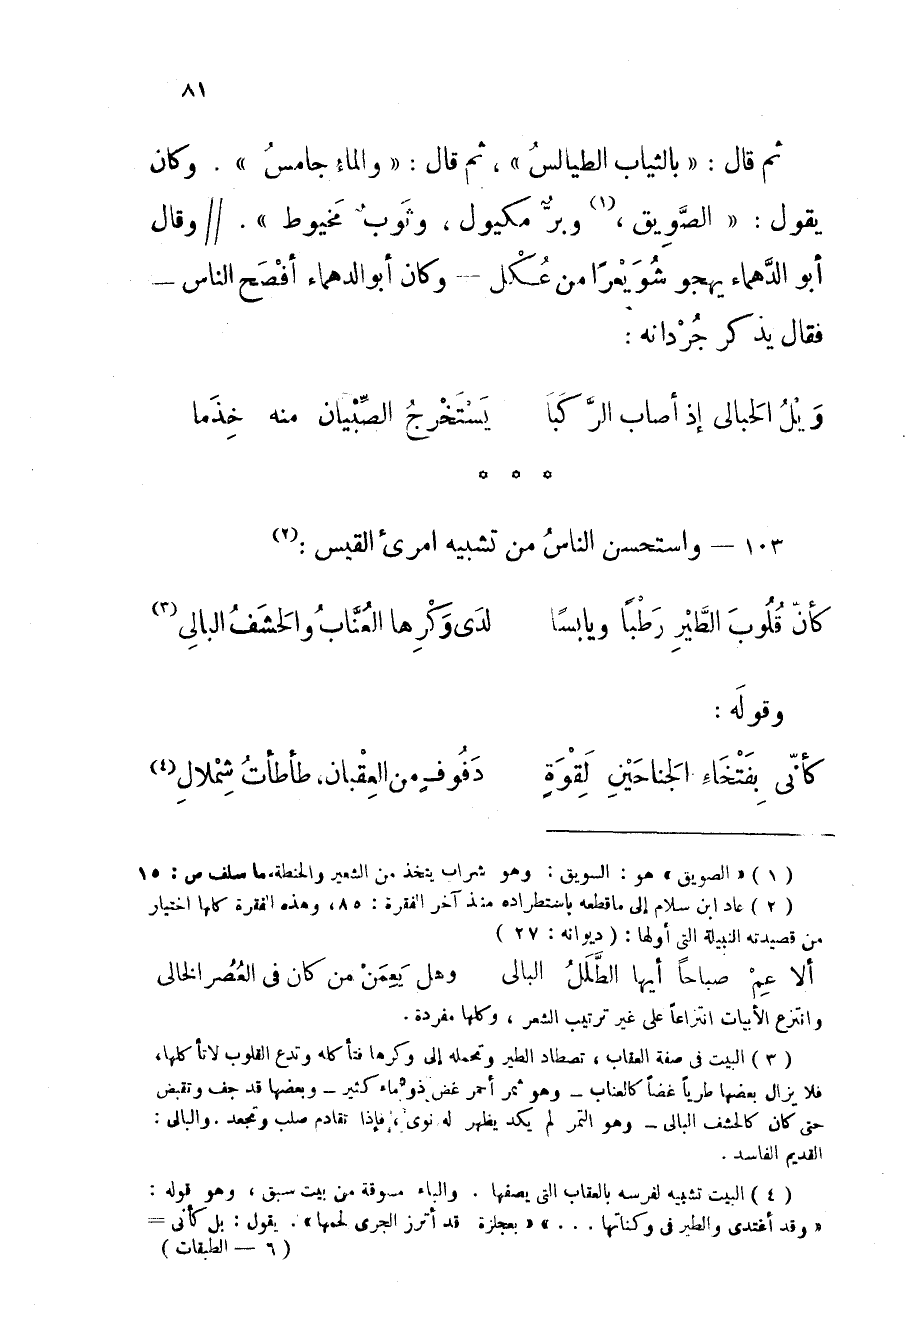 ٨١
ثم قال : « بالثياب الطيالسُ » ، ثم قال : « والماء جامسُ » . وكان
يقول : « الصَّويق ،(١) وبرٌّ مكيول ، وثوبٌ مَخيوط » . // وقال
أبو الدَّهماء يهجو شُوَيْعرًا من عُكْل — وكان أبو الدهماء أفْصَح الناس —
فقال يذكر جُرْدانه :
وَيْلُ الحَبالى إذ أصاب الرَّكَبَا يَسْتَخْرِجُ الصِّبْيان منه خِذَما
* * *
١٠٣ — واستحسن الناسُ من تشبيه امرئ القيس :(٢)
كأنّ قُلُوبَ الطَّيْرِ رَطْبًا ويابسًا لدَى وَكْرِها العُنَّابُ والحَشَفُ البالِي(٣)
وقولَه :
كأنّى بِفَتْخَاءِ الجَناحَيْنِ لَقِوْةٍ دَفُوفٍ من العِقْبان، طأطأتُ شِمْلالِ(٤)
( ١ ) « الصويق » هو : السويق : وهو شراب يتخذ من الشعير والحنطة، ما سلف ص : ١٥
( ٢ ) عاد ابن سلام إلى ما قطعه باستطراده منذ آخر الفقرة : ٨٥ ، وهذه الفقرة كلها اختيار
من قصيدته النبيلة التى أولها : ( ديوانه : ٢٧ )
ألا عِمْ صباحاً أيها الطَّلَلُ البالى وهل يَعِمَنْ من كان فى العُصُر الخالى
وانتزع الأبيات انتزاعاً على غير ترتيب الشعر ، وكلها مفردة .
( ٣ ) البيت فى صفة العقاب ، تصطاد الطير وتحمله إلى وكرها فتأكله وتدع القلوب لا تأكلها،
فلا يزال بعضها طرياً غضاً كالعناب — وهو ثمر أحمر غض ذو ماء كثير — وبعضها قد جف وتقبض
حتى كان كالحشف البالى — وهو التمر لم يكد يظهر له نوى ، فإذا تقادم صلب وتجعد . والبالى :
القديم الفاسد .
( ٤ ) البيت تشبيه لفرسه بالعقاب التى يصفها . والباء مسوقة من بيت سبق ، وهو قوله :
« وقد أغتدى والطير فى وكناتها . . . » « بعجلزة قد أترز الجرى لحمها » . يقول : بل كأنى =
( ٦ — الطبقات )